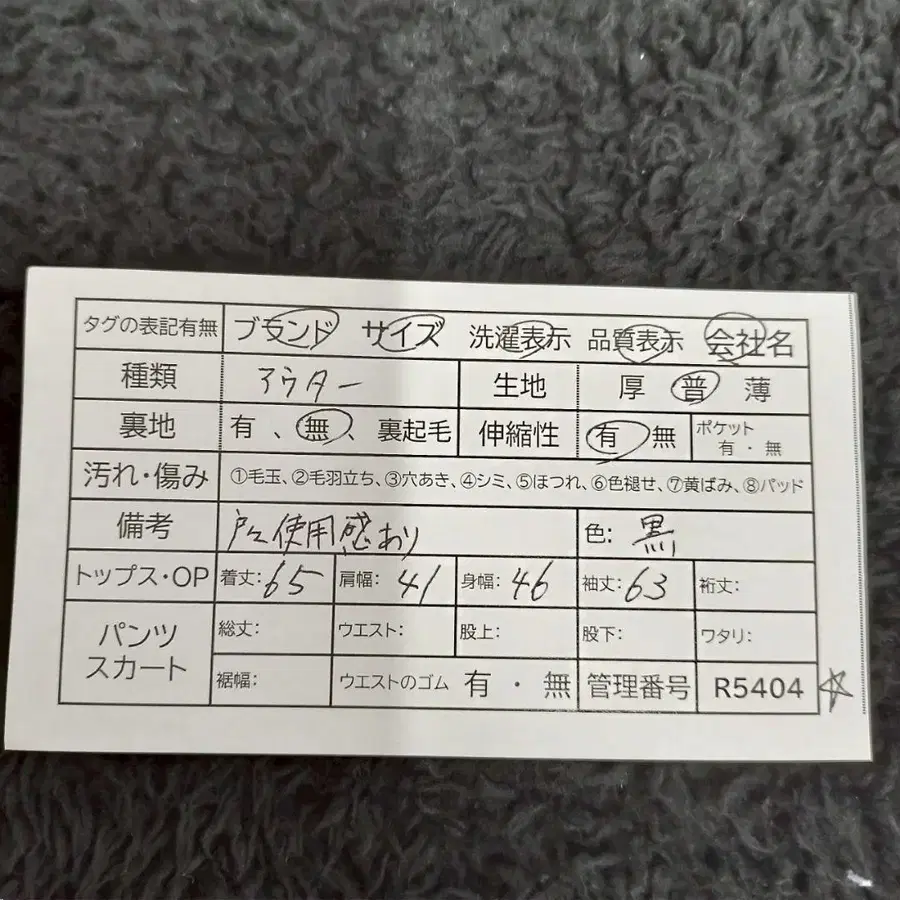 タグの表記有無 ブランド サイズ 洗濯表示 品質表示 会社名
種類 アウター 生地 厚 普 薄
裏地 有、無、裏起毛 伸縮性 有 無 ポケット 有・無
汚れ・傷み ①毛玉、②毛羽立ち、③穴あき、④シミ、⑤ほつれ、⑥色褪せ、⑦黄ばみ、⑧パッド
備考 使用感あり 色: 黒
トップス・OP 着丈:65 肩幅:41 身幅:46 袖丈:63 裄丈:
パンツ スカート 総丈: ウエスト: 股上: 股下: ワタリ:
裾幅: ウエストのゴム 有・無 管理番号 R5404 ☆